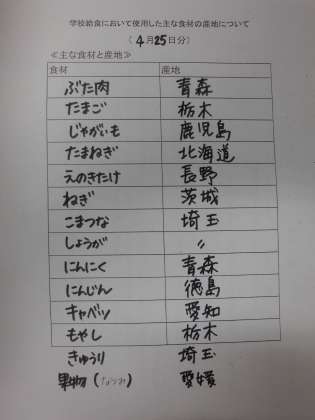 学校給食において使用した主な食材の産地について
(4月25日分)
≪主な食材と産地≫
食材 産地
ぶた肉 青森
たまご 栃木
じゃがいも 鹿児島
たまねぎ 北海道
えのきたけ 長野
ねぎ 茨城
こまつな 埼玉
しょうが 〃
にんにく 青森
にんじん 徳島
キャベツ 愛知
もやし 栃木
きゅうり 埼玉
果物(なつみ) 愛媛